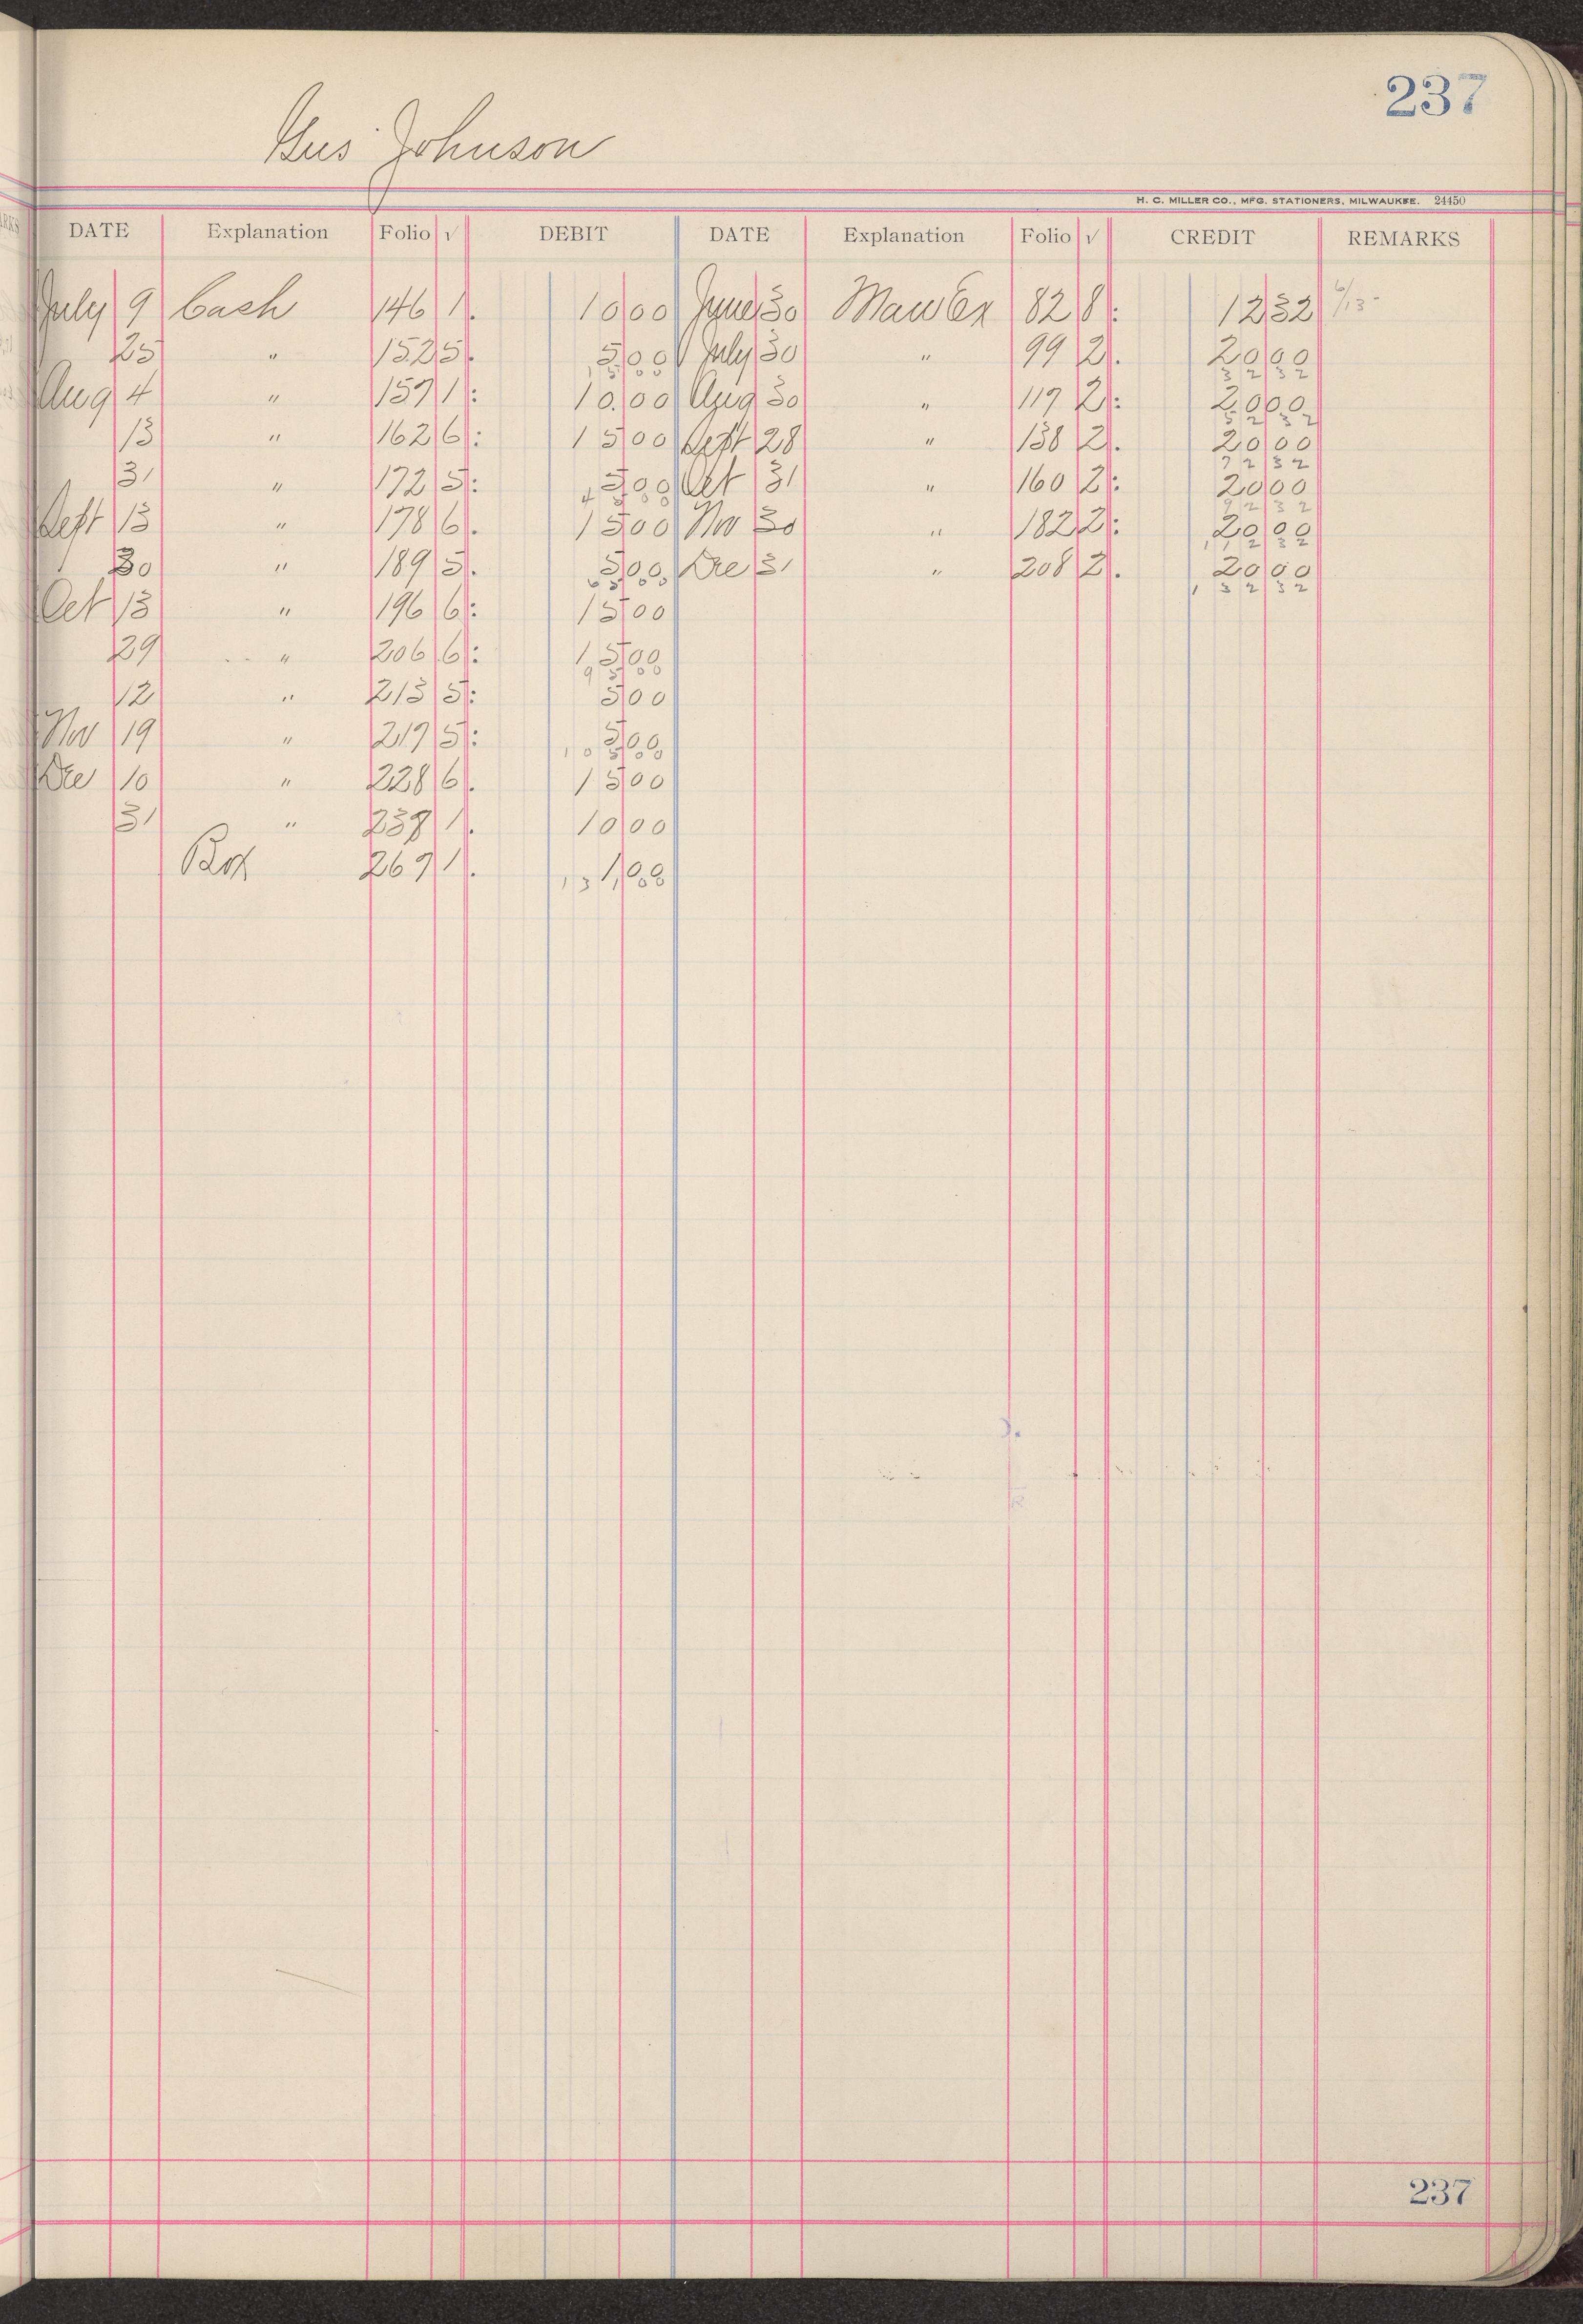 237
Gus Johnson
H. C. MILLER CO., MFG. STATIONERS, MILWAUKEE. 24450
DATE Explanation Folio √ DEBIT DATE Explanation Folio √ CREDIT REMARKS
July 9 Cash 146 1. 10 00 June 30 Man Ex 82 8: 12 32 6/13-
25 " 152 5. 5 00 July 30 " 99 2. 20 00
15 00 32 32
Aug 4 " 157 1: 10.00 Aug 30 " 119 2: 20 00
52 32
13 " 162 6: 15 00 Sept 28 " 138 2. 20 00
72 32
31 " 172 5: 5 00 Oct 31 " 160 2: 20 00
45 00 92 32
Sept 13 " 178 6. 15 00 Nov 30 " 182 2: 20 00
112 32
30 " 189 5. 5 00 Dec 31 " 208 2. 20 00
65 00 132 32
Oct 13 " 196 6: 15 00
29 " 206 6: 15 00
95 00
12 " 213 5: 5 00
Nov 19 " 219 5: 5 00
105 00
Dec 10 " 228 6. 15 00
31 " 238 1. 10 00
Box 267 1. 1 00
131 00
237